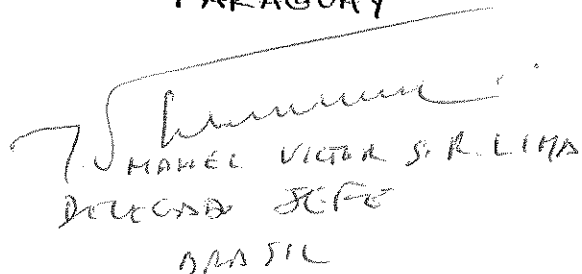 PARAGUAY
MANEL VICTOR S. R. LIMA
DELEGADO JEFE
BRASIL